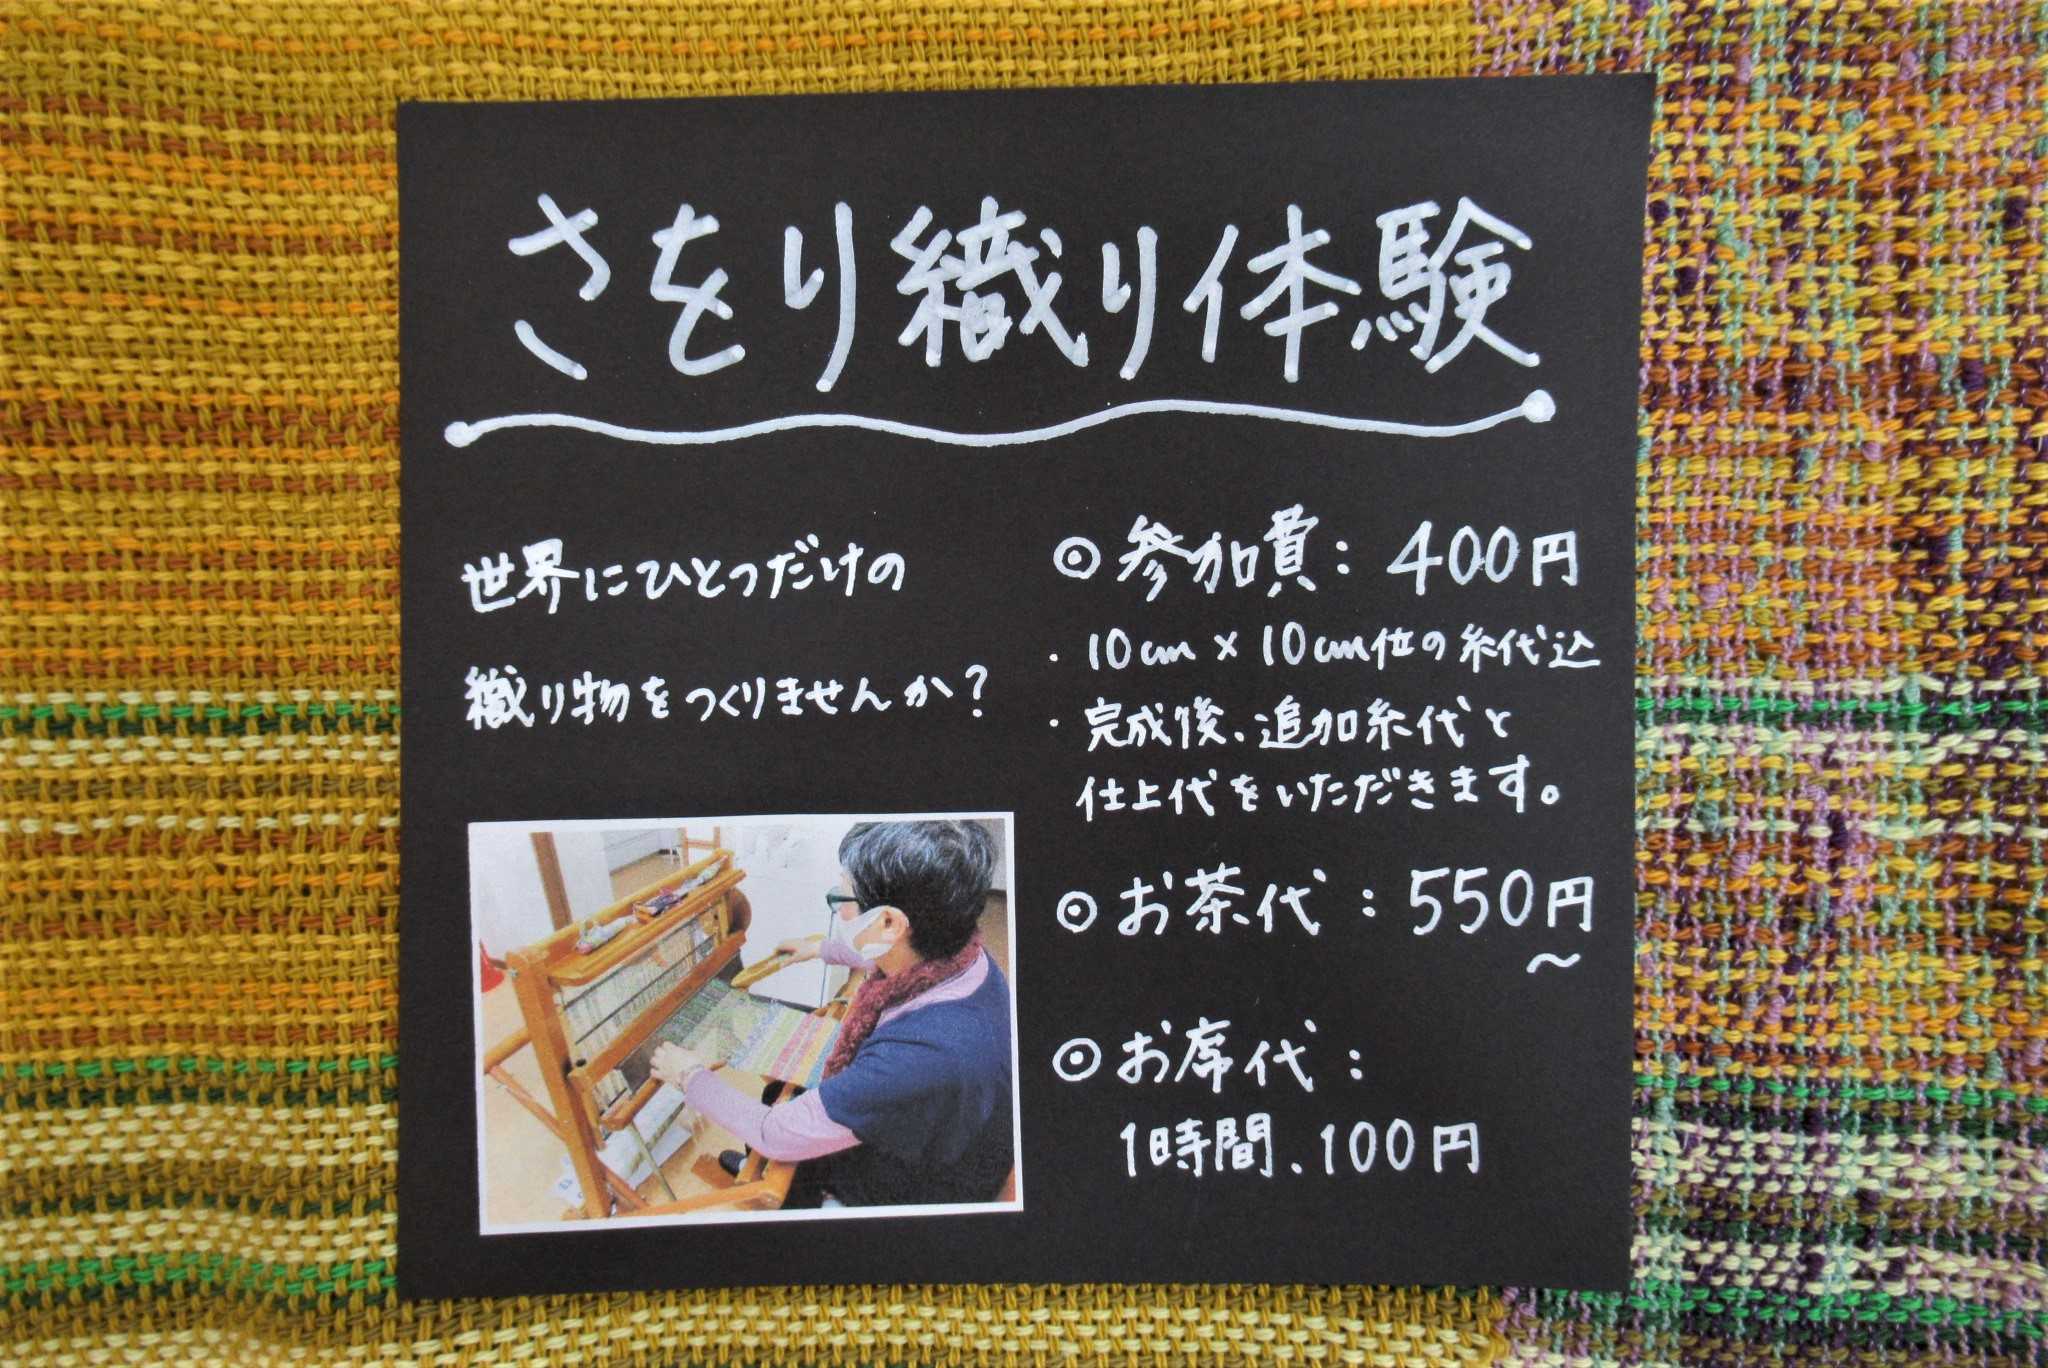 さをり織り体験
世界にひとつだけの
織り物をつくりませんか？
◎参加費：400円
・10cm×10cm位の糸代込
・完成後、追加糸代と
仕上代をいただきます。
◎お茶代：550円
～
◎お席代：
1時間、100円